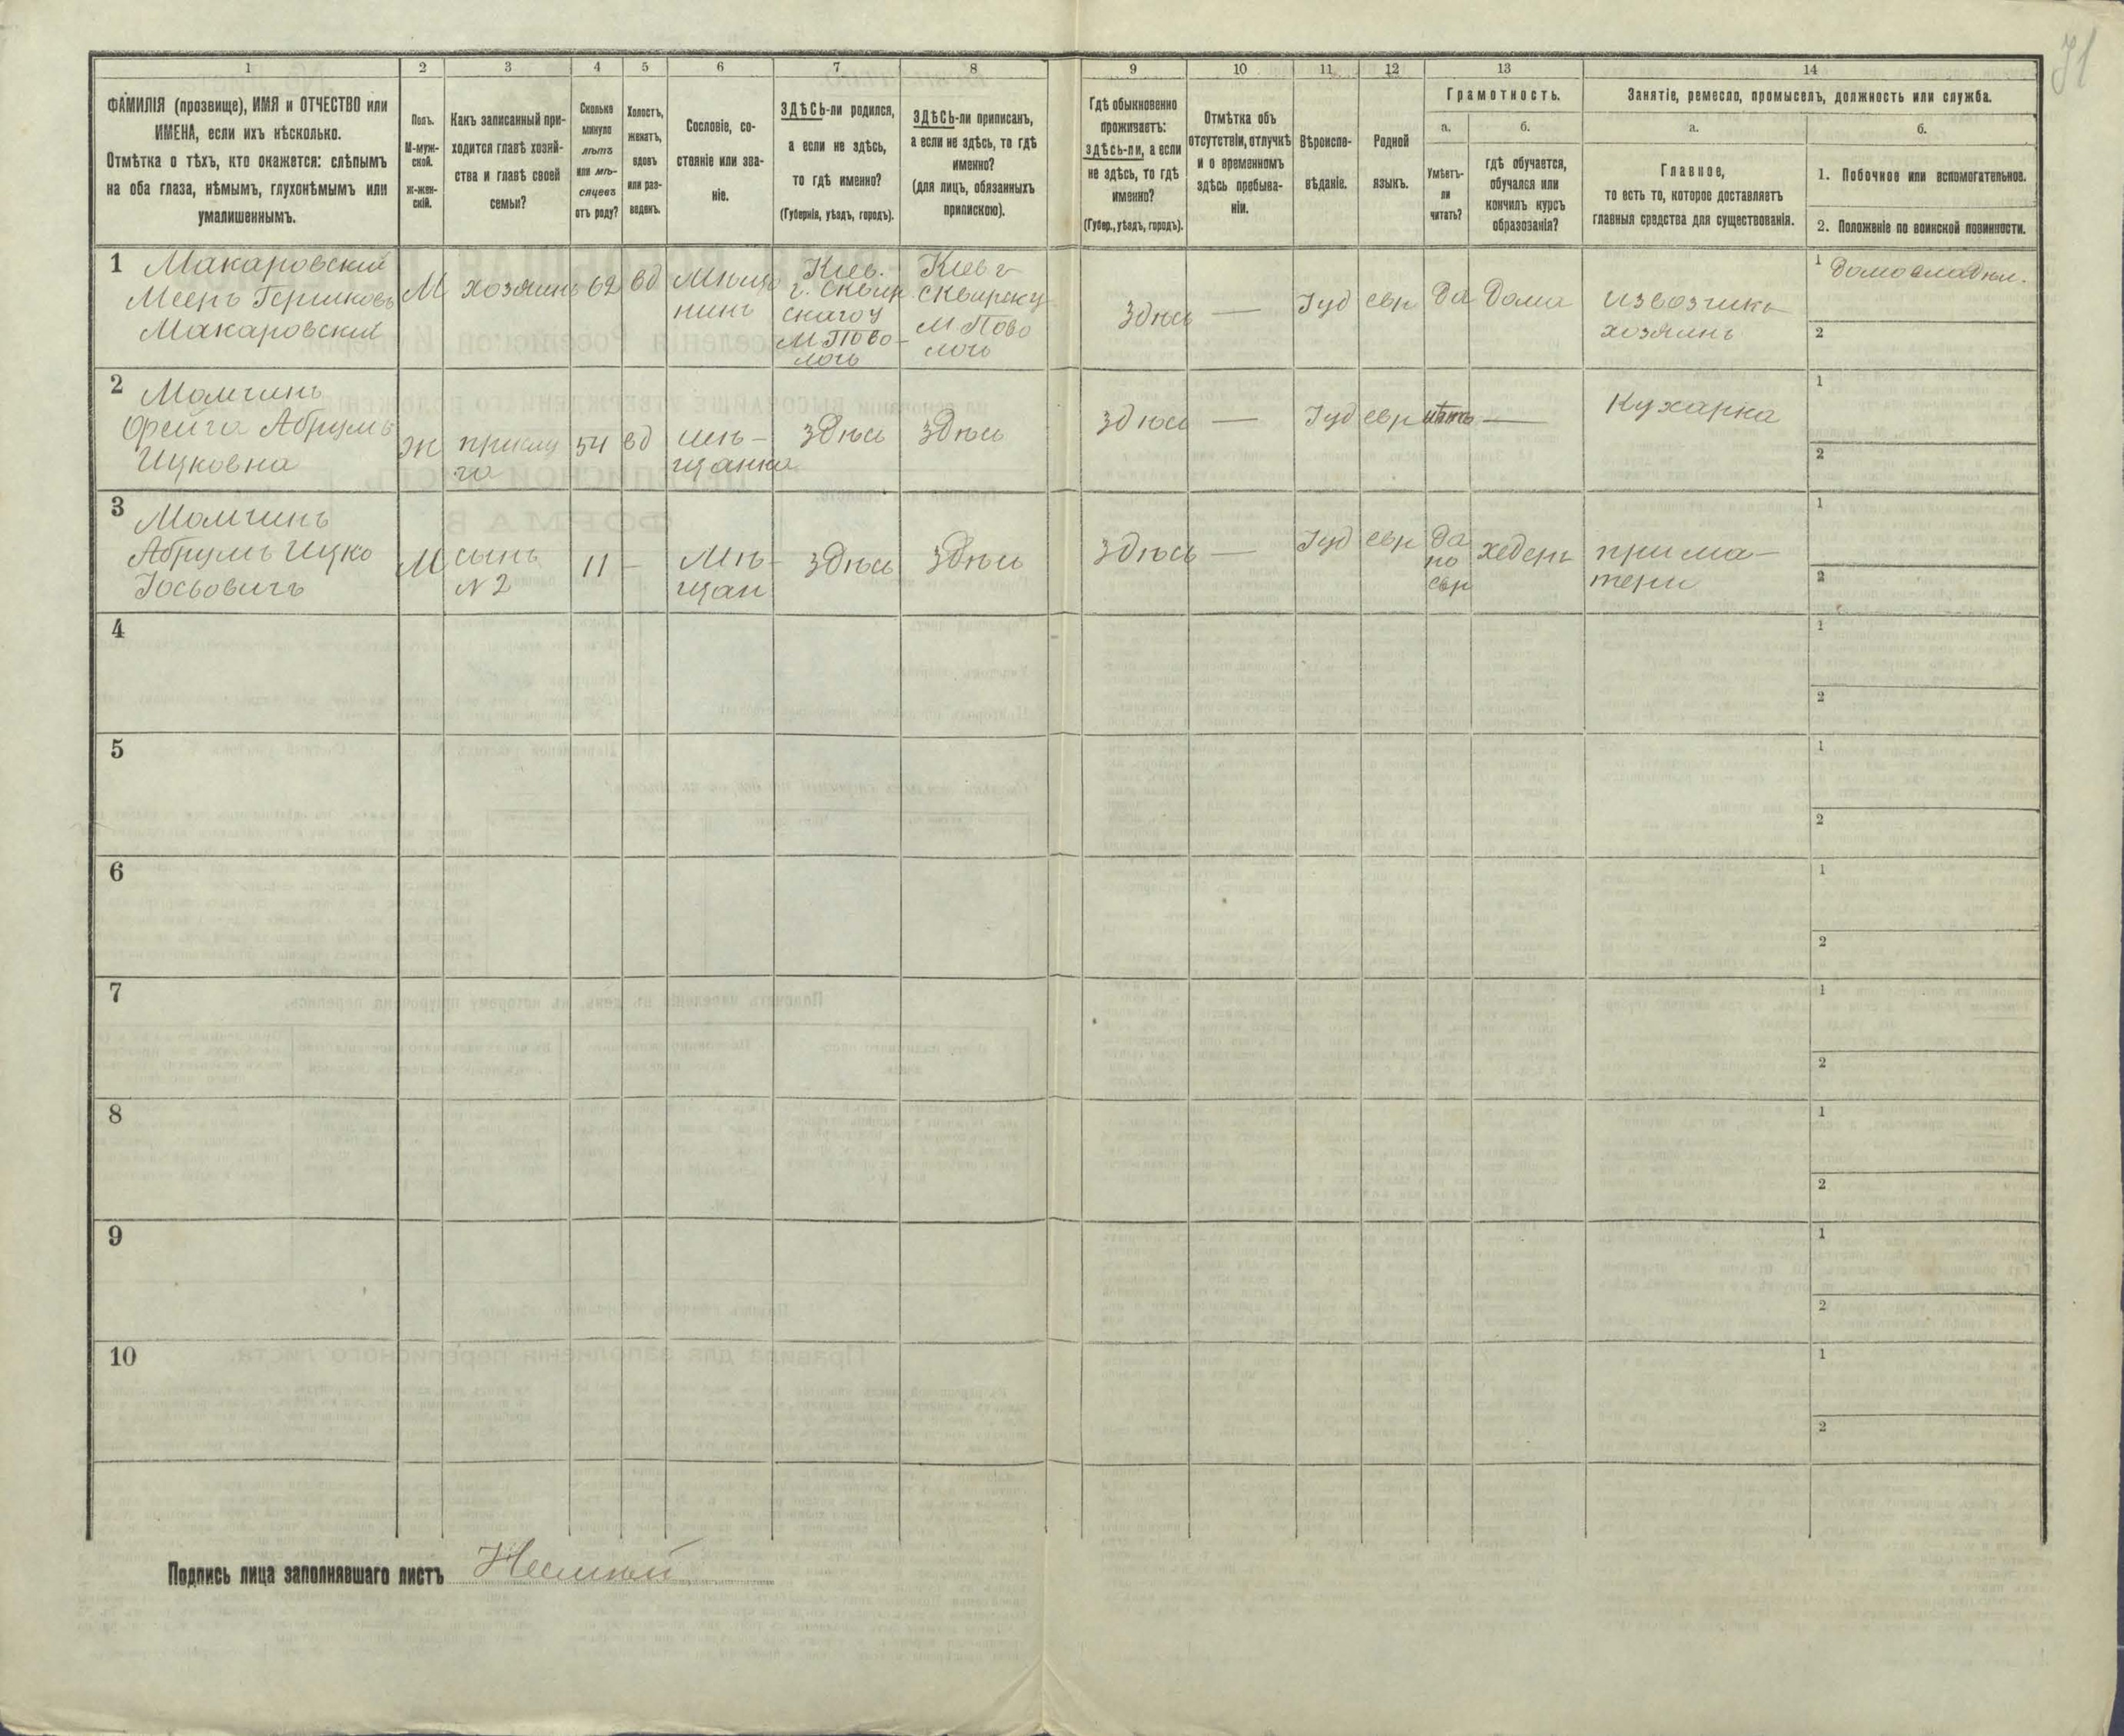 71
1
2
3
4
5
6
7
8
9
10
11
12
13
14
ФАМИЛІЯ (прозвище), ИМЯ и ОТЧЕСТВО или
ИМЕНА, если ихъ нѣсколько.
Отмѣтка о тѣхъ, кто окажется: слѣпымъ
на оба глаза, нѣмымъ, глухонѣмымъ или
умалишеннымъ.
Полъ.
М-муж-
ской.
ж-жен-
скій.
Какъ записанный при-
ходится главѣ хозяй-
ства и главѣ своей
семьи?
Сколько
минуло
лѣтъ
или мѣ-
сяцевъ
отъ роду?
Холостъ,
женатъ,
вдовъ
или раз-
веденъ.
Сословіе, со-
стояніе или зва-
ніе.
ЗДѢСЬ-ли родился,
а если не здѣсь,
то гдѣ именно?
(Губернія, уѣздъ, городъ).
ЗДѢСЬ-ли приписанъ,
а если не здѣсь, то гдѣ
именно?
(для лицъ, обязанныхъ
припискою).
Гдѣ обыкновенно
проживаетъ:
здѣсь-ли, а если
не здѣсь, то гдѣ
именно?
(Губер., уѣздъ, городъ).
Отмѣтка объ
отсутствіи, отлучкѣ
и о временномъ
здѣсь пребыва-
ніи.
Вѣроиспо-
вѣданіе.
Родной
языкъ.
Грамотность.
а.
Умѣетъ-
ли
читать?
б.
гдѣ обучается,
обучался или
кончилъ курсъ
образованія?
Занятіе, ремесло, промыселъ, должность или служба.
а.
Главное,
то есть то, которое доставляетъ
главныя средства для существованія.
б.
1. Побочное или вспомогательное.
2. Положеніе по воинской повинности.
1 Макаровскій
Мееръ Гершковъ
Макаровскій
М
хозяинъ
62
вд
Мѣща
нинъ
Кіев.
г. Сквир
скаго у
М Пово-
лочь
Кіев г
Сквирску
М Пово
лочь
Здѣсь
—
Іуд
евр
Да
Дома
извозчикъ
хозяинъ
1 Домовладѣл.
2
2 Момчинъ
Фейга Абрумъ
Ицковна
Ж
прислу
га
54
вд
мѣ-
щанка
здѣсь
здѣсь
здѣсь
—
Іуд
евр
нѣтъ
—
Кухарка
1
2
3 Момчинъ
Абрумъ Ицко
Іосьовичъ
М
сынъ
N 2
11
—
Мѣ-
щан
здѣсь
здѣсь
здѣсь
—
Іуд
евр
да
по
евр
хедеръ
при ма-
тери
1
2
4
1
2
5
1
2
6
1
2
7
1
2
8
1
2
9
1
2
10
1
2
Подпись лица заполнявшаго листъ